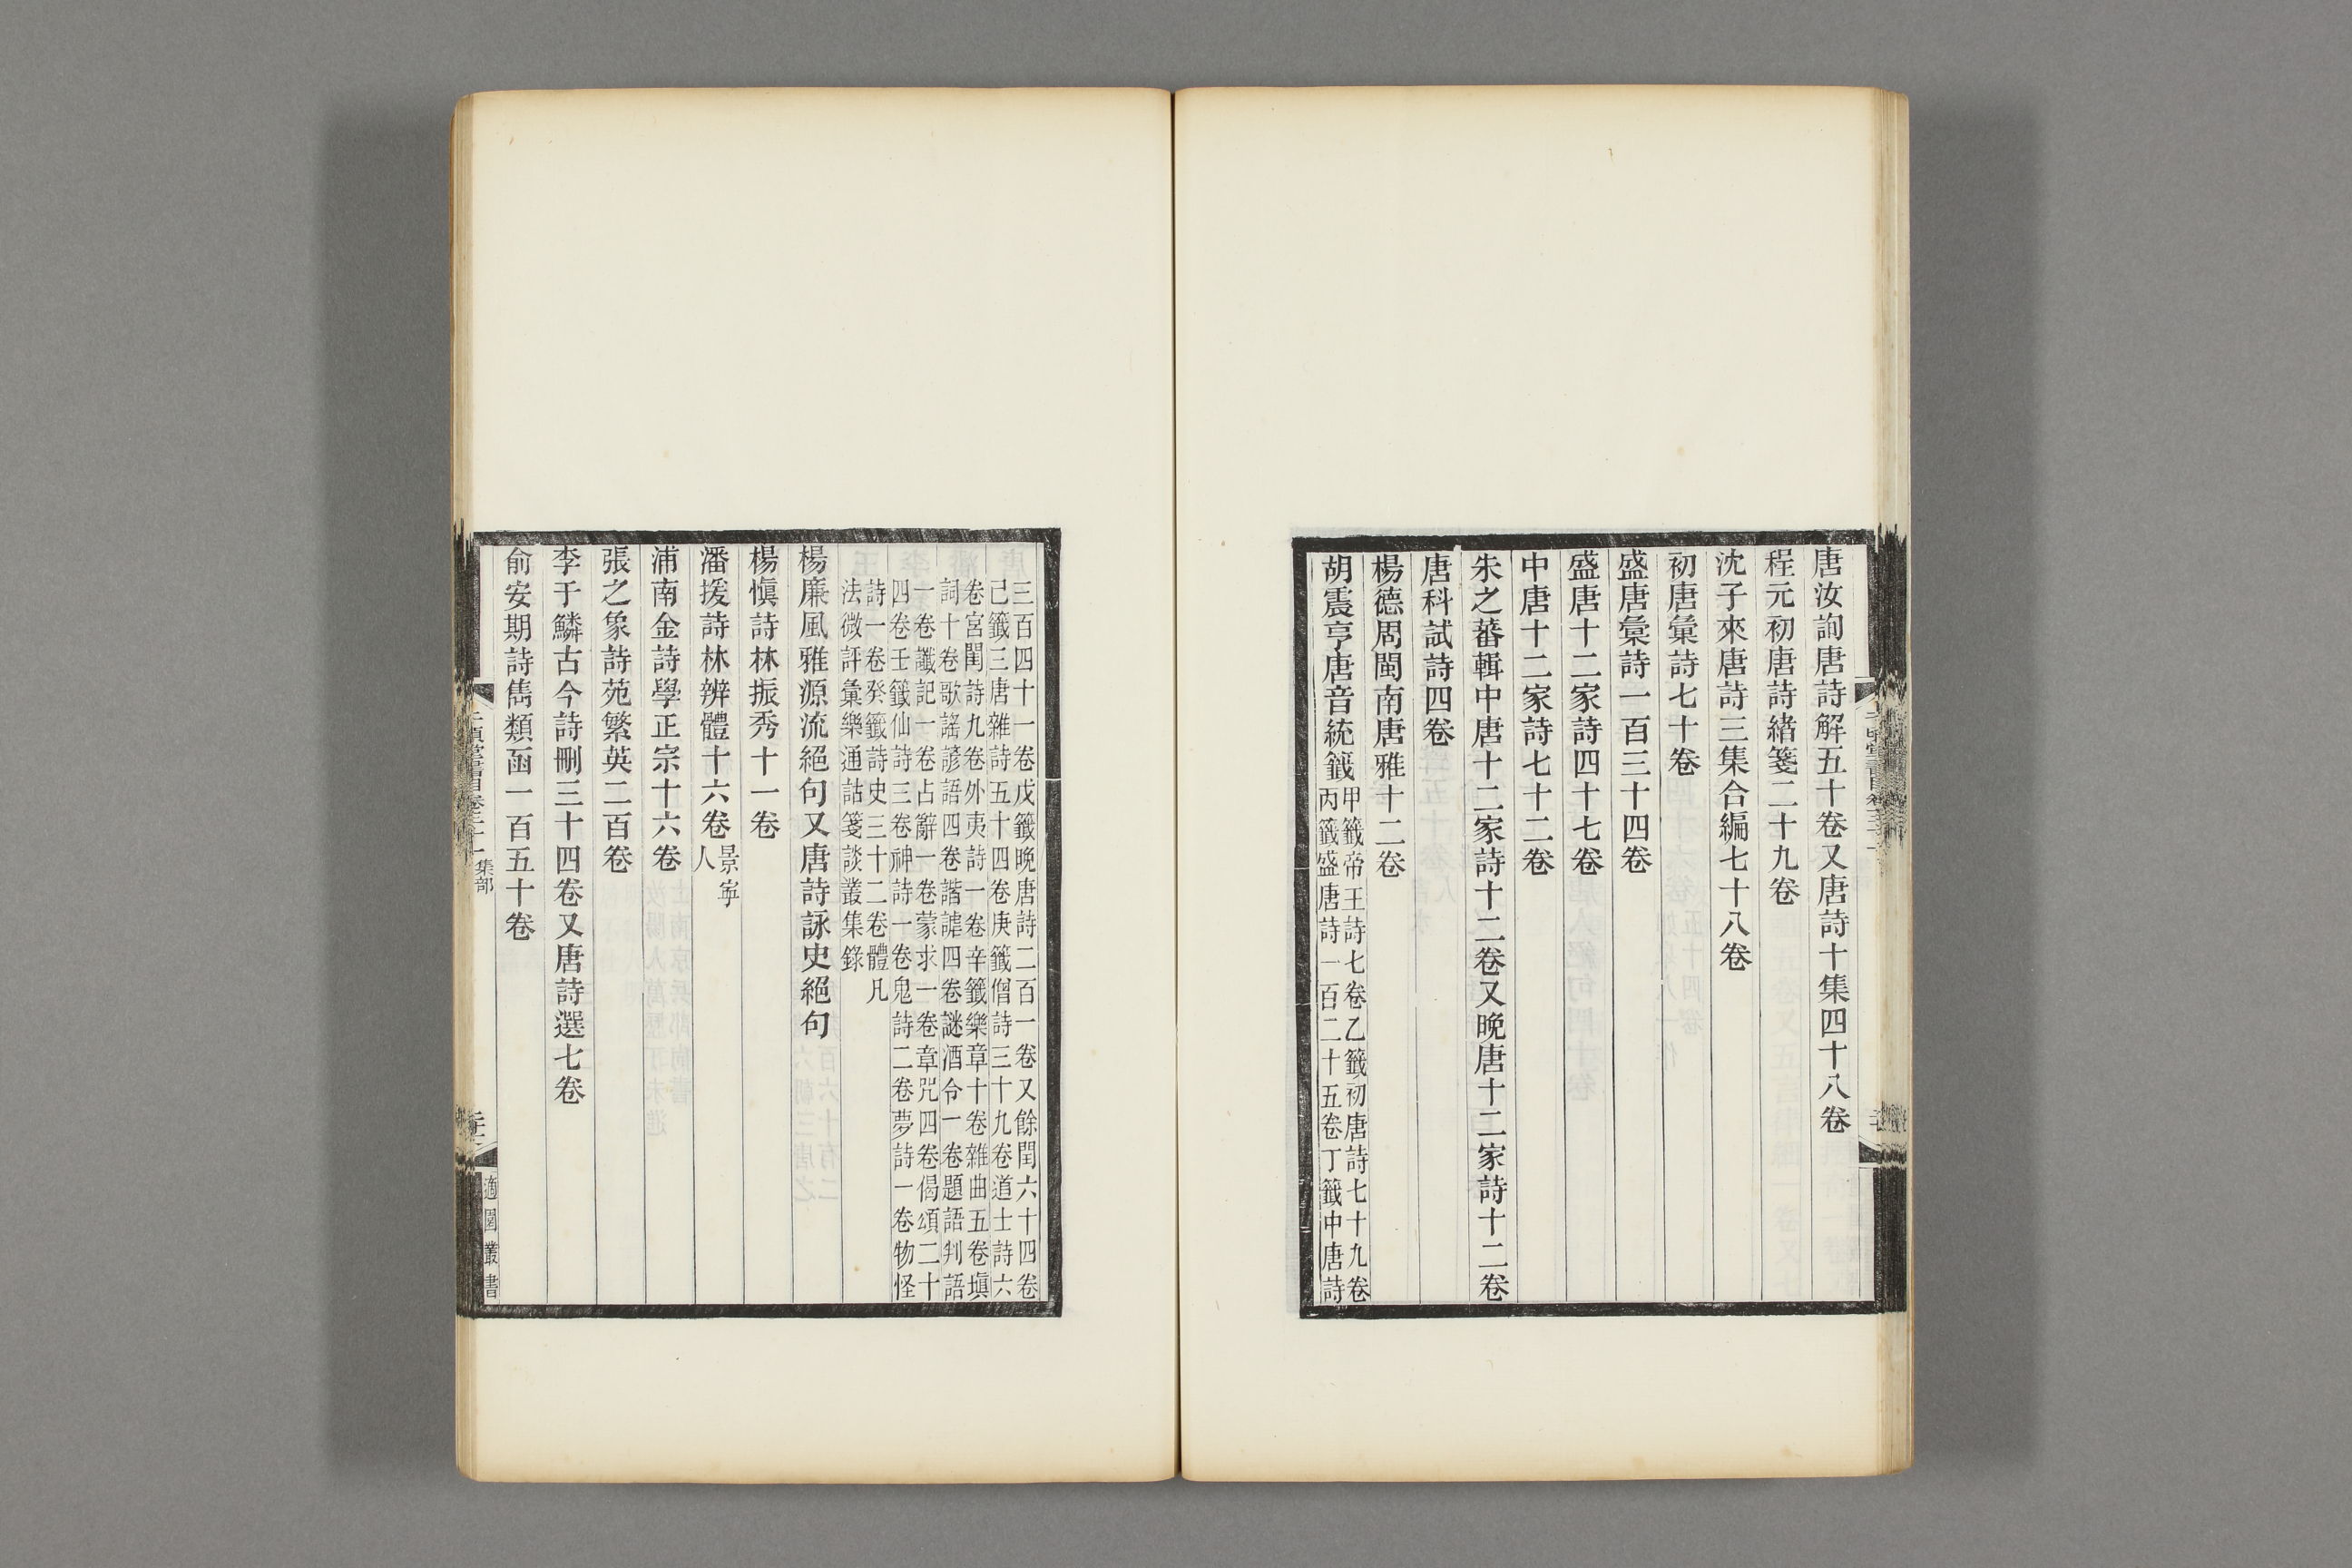 唐汝詢唐詩解五十卷又唐詩十集四十八卷
程元初唐詩緒箋二十九卷
沈子來唐詩三集合編七十八卷
初唐彙詩七十卷
盛唐彙詩一百三十四卷
盛唐十二家詩四十七卷
中唐十二家詩七十二卷
朱之蕃輯中唐十二家詩十二卷又晚唐十二家詩十二卷
唐科試詩四卷
楊德周閩南唐雅十二卷
胡震亨唐音統籤甲籤帝王詩七卷乙籤初唐詩七十九卷
丙籤盛唐詩一百二十五卷丁籤中唐詩
三百四十一卷戊籤晚唐詩二百一卷又餘閏六十四卷
己籤三唐雜詩五十四卷庚籤僧詩三十九卷道士詩六
卷宮閨詩九卷外夷詩一卷辛籤樂章十卷雜曲五卷塡
詞十卷歌謠諺語四卷諧謔四卷謎酒令一卷題語判語
一卷讖記一卷占辭一卷蒙求一卷章咒四卷偈頌二十
四卷壬籤仙詩三卷神詩一卷鬼詩二卷夢詩一卷物怪
詩一卷癸籤詩史三十二卷體凡
法微評彙樂通詁箋談叢集錄
楊廉風雅源流絕句又唐詩詠史絕句
楊愼詩林振秀十一卷
潘援詩林辨體十六卷景寧
人
浦南金詩學正宗十六卷
張之象詩苑繁英二百卷
李于鱗古今詩刪三十四卷又唐詩選七卷
俞安期詩雋類函一百五十卷
集部
適園叢書